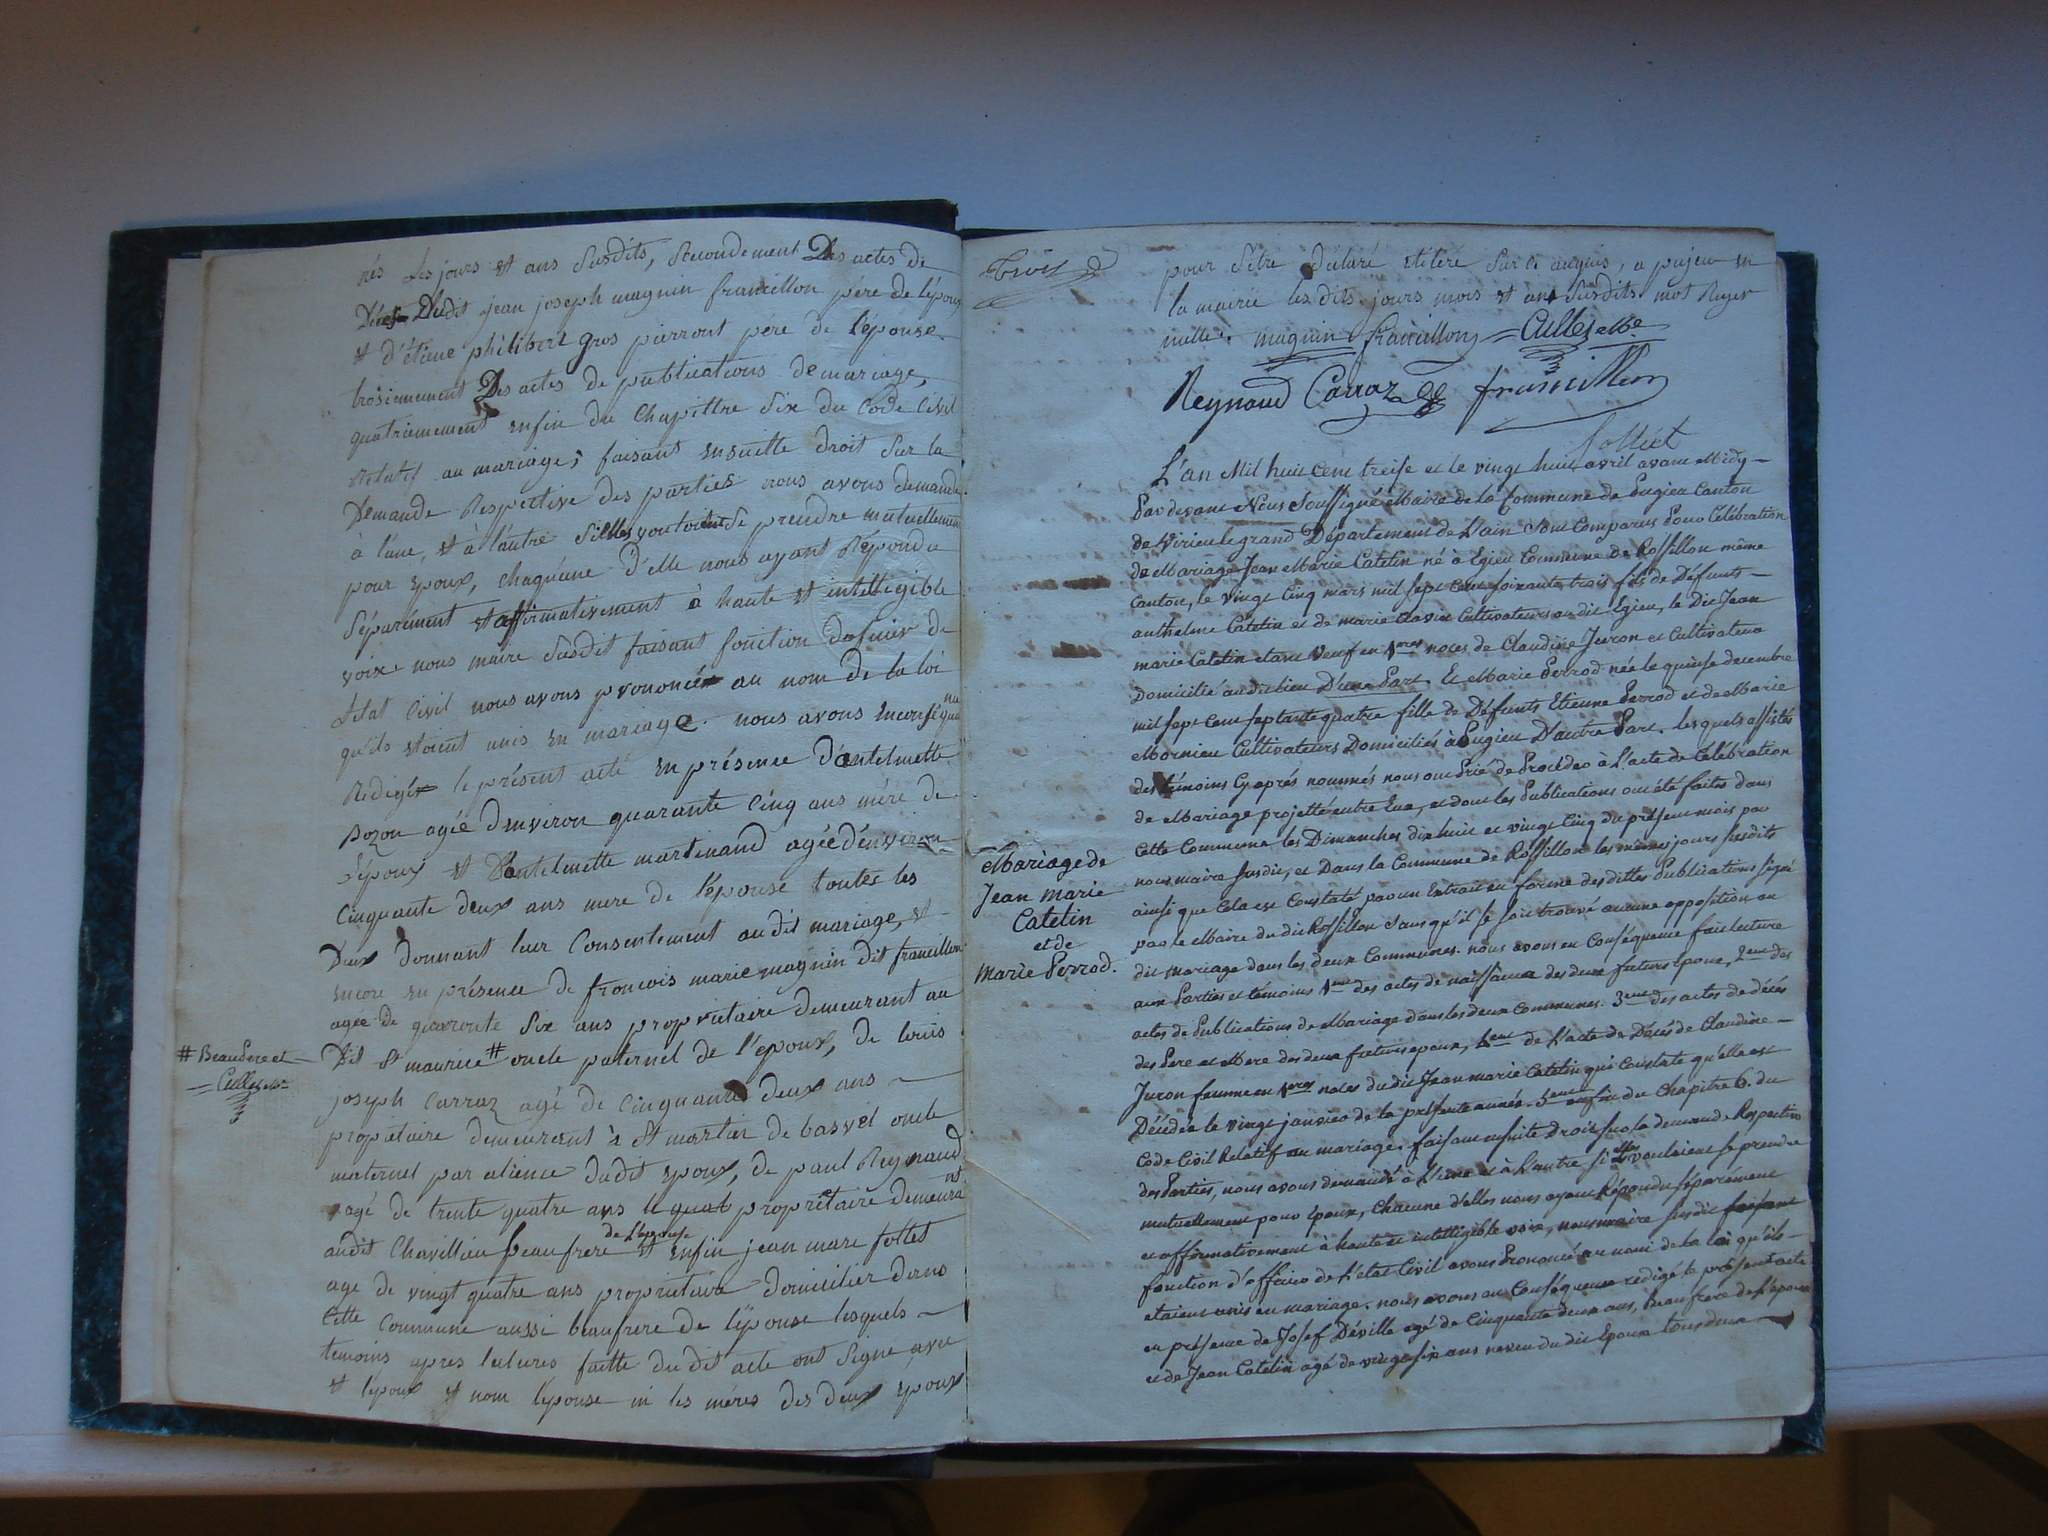 nés les jours et ans susdits, secondement Des actes de
Décès Dudit jean joseph magnin francillon père de l'époux
et d'étiene philibert gros pierront père de l'épouse
troisiemement Des actes de publications de mariage,
quatriemement enfin du Chapittre Six du Code Civil
Relatif au mariage; faisant ensuitte droit sur la
Demande Respective des parties nous avons demandé
à l'une, et à l'autre si elles vouloient se prendre mutuellement
pour epoux, chaqu'une d'elle nous ayant Répondu
Séparément et affirmativement à haute et intelligible
voix. nous maire susdit faisant fonction dofficier de
l'état Civil nous avons prononcé au nom de la loi
qu'ils etoient unis en mariage. nous avons en conséquence
Redigé le présent acte en présence D'antelmette
Bozon agée d'environ quarante cinq ans mére de
l'époux et D'antelmette martinand agée d'environ
Cinquante deux ans mere de l'épouse toutes les
Deux donnant leur Consentement audit mariage, et
encore en présence de francois marie magnin dit francillon
agée de quarante six ans propriétaire demeurant au
Dit St maurice # oncle paternel de l'époux, de louis
# Beaupere et
= Cullet me
joseph Carraz agé de Cinquante deux ans
propriétaire demeurant à St martin de bavel oncle
maternel par alience dudit epoux, de paul Reynaud
agé de trente quatre ans le quat propriétaire demeurant
audit Chavillieu beaufrere de l'epouse et enfin jean marc follet
age de vingt quatre ans propriétaire domicilier dans
Cette commune aussi beaufrere de l'épouse lesquels
temoins apres lectures faitte du dit acte ont signe avec
et l'epoux et nom l'épouse ni les méres des deux epoux
Trois
pour s'être déclaré illitéré sur ce enquis, a pugieu en
la mairie les dits jours mois et ans susdits. mot Reyer
nulle. magnin francillon = Cullet Me
Reynaud Carraz francillon
follict
L'an Mil huit cent treise et le vingt huit avril avant Midy
Par devant Nous Soussigné Maire de la Commune de Pugieu Canton
de Virieu le grand Département de L'ain Sont Comparus Pour Célébration
de Mariage Jean Marie Catelin né à Egieu Commune de Rossillon même
Canton, le vingt Cinq mars mil sept Cent soixante trois fils de Défunts
anthelme Catelin et de marie Clavin Cultivateurs au dit Egieu, le Dit Jean
marie Catelin etant Veuf en 1res noces de Claudine Juron et Cultivateur
Domicilié au dit lieu D'une Part. Et Marie Perrod née le quinse decembre
mil sept Cent septante quatre fille de Défunts Etienne Perrod et de Marie
Mornieu Cultivateurs Domiciliés à Pugieu D'autre Part. lesquels assistés
des témoins Cy après nommés nous ont Prié de Procéder à L'acte de Célébration
de Mariage projetté entre Eux, et dont les Publications ont été faites dans
Cette Commune les Dimanches dix huit et vingt Cinq du présent mois par
nous maire susdit, et Dans la Commune de Rossillon les mêmes jours susdits
ainsi que Cela est Constaté par un Extrait en forme des dittes Publications signé
par le Maire du dit Rossillon sans qu'il se soit trouvé aucune opposition au
dit mariage dans les deux Communes. nous avons en Conséquence fait lecture
aux Parties et témoins 1ent des actes de naissance des deux futurs époux, 2ent des
actes de Publications de Mariage dans les deux Communes. 3ent des actes de décès
des Pere et Mere des deux futurs epoux, 4ent de L'acte de Décès de Claudine
Juron femme en 1res noces du dit Jean marie Catelin qui Constate qu'elle est
Décédée le vingt janvier de la présente année. 5ent enfin du Chapitre 6. du
Code Civil Relatif au mariage. faisant ensuite Droit sur la demande Respective
des Parties, nous avons demandé à L'une et à L'autre si elles voulaient se prendre
mutuellement pour époux, Chacune d'elles nous ayant Répondu séparément
et affirmativement à haute et intelligible voix, nous maire susdit faisant
fonction d'officier de l'etat Civil avons Prononcé au nom de la loi qu'ils
etaient unis en mariage. nous avons en Conséquence redigé le présent acte
en présence de Josef Déville agé de Cinquante deux ans, beaufrere de l'épouse
et de Jean Catelin agé de vingt six ans neveu du dit Epoux tous deux
Mariage de
Jean Marie
Catelin
et de
Marie Perrod.